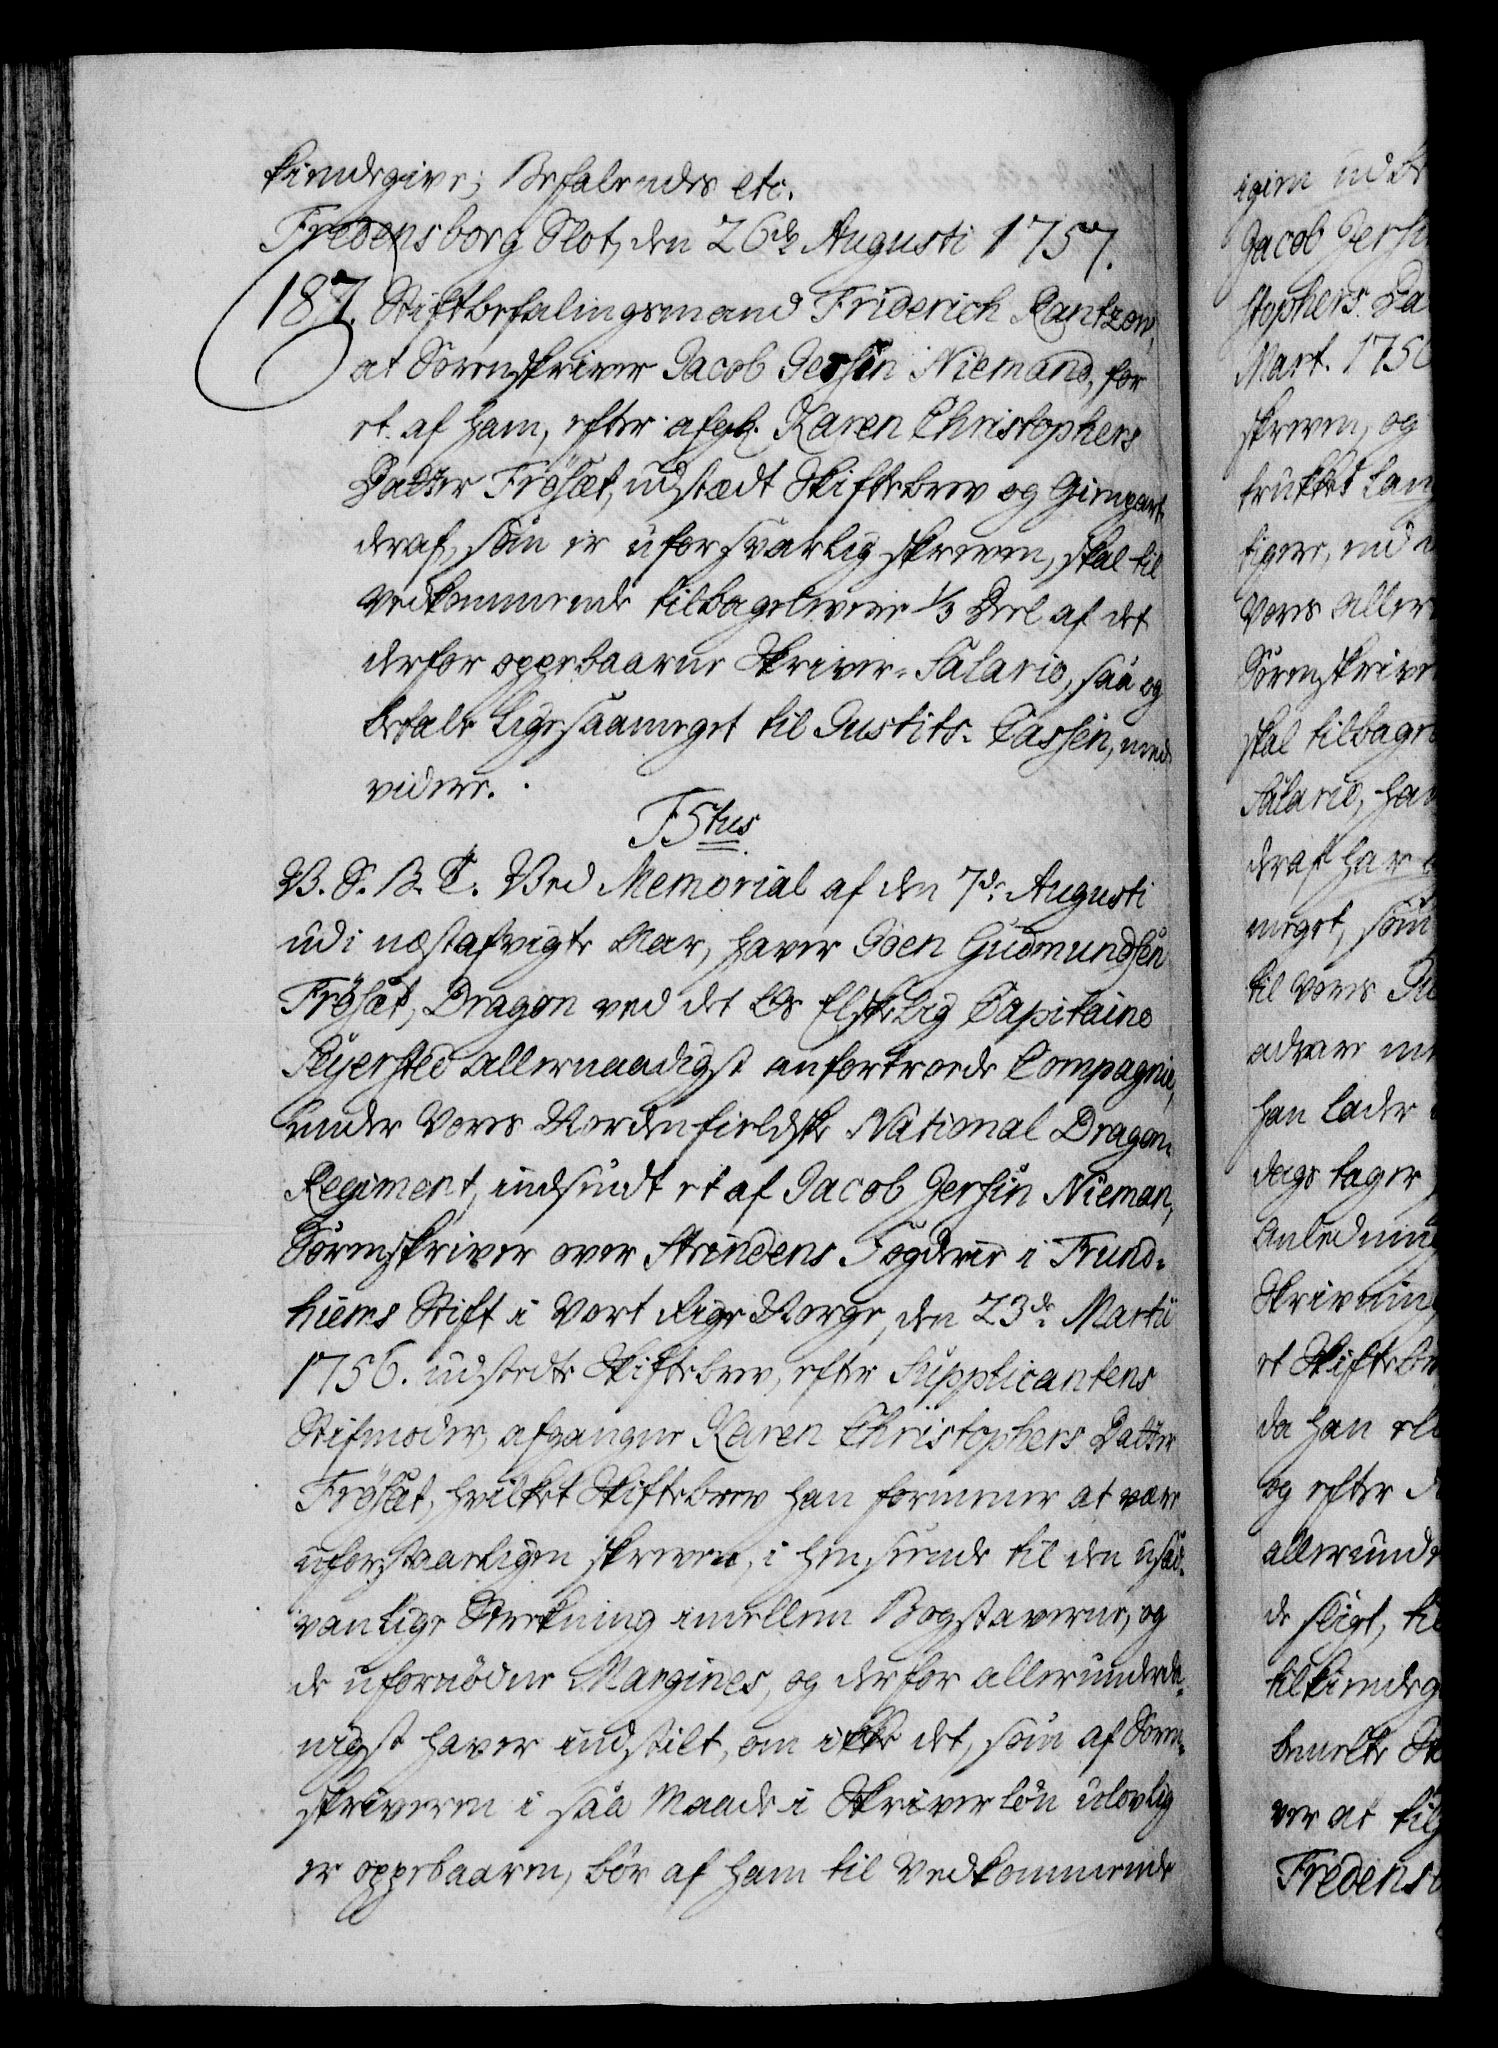 kiendegive; Befalendes etc.
Fredensborg Slot, den 26de Augusti 1757.
187. Stiftbefalingsmand Friderich Rantzow,
at Sorenskriver Jacob Jersin Niemand, for
et af ham, efter afgl. Karen Christophers
Datter Frösæt, udstædt Skiftebrev og Gienpart
deraf, som er uforsvarlig skreven, skal til
Vedkommende tilbagelevere 1/3 Deel af det
derfor oppebaarne Skriver-Salario, saa og
betale ligesaameget til Justits-Cassen, med
videre.
F5tus
V. G. B. T. Ved Memorial af den 7de Augusti
udi næstafvigte Aar, haver Joen Gudmundsen
Frösæt, Dragon ved det Os Elskelig Capitaine
Lÿersted allernaadigst anfortroede Compagnie,
under Vores Nordenfieldske National Dragon-
Regiment, indsendt et af Jacob Jersin Nieman,
Sorenskriver over Strindens Fogderie i Trund-
hiems Stift i Vort Rige Norge, den 23de Martii
1756. udstedte Skiftebrev, efter Supplicantens
Stifmoder, afgangne Karen Christophers Datter
Frösæt, hvilket Skiftebrev han formener at være
uforsvarligen skreven, i henseende til den usæd-
vanlige Strekning imellem Bogstaverne, og
de ufornödne Margines, og derfor allerunderda-
nigst haver indstilt, om ikke det, som af Soren-
skriveren i saa Maade i Skriverlön ulovlig
er oppebaaren, bör af ham til Vedkommende
igien udbe
Jacob Jersin
stophers Da
Mart. 1756
skreven, og
trukket lang
tigere, end
Vores aller
Sorenskrive
skal tilbage
Salario, han
deraf har
meget, som
til Vores Ju
advare
han lader
dags tager
Anledning
Skrivning
et Skiftebre
da han
og efter
allerunde
de sligt, til
tilkiendeg
bemelte
ver at til
Fredensb